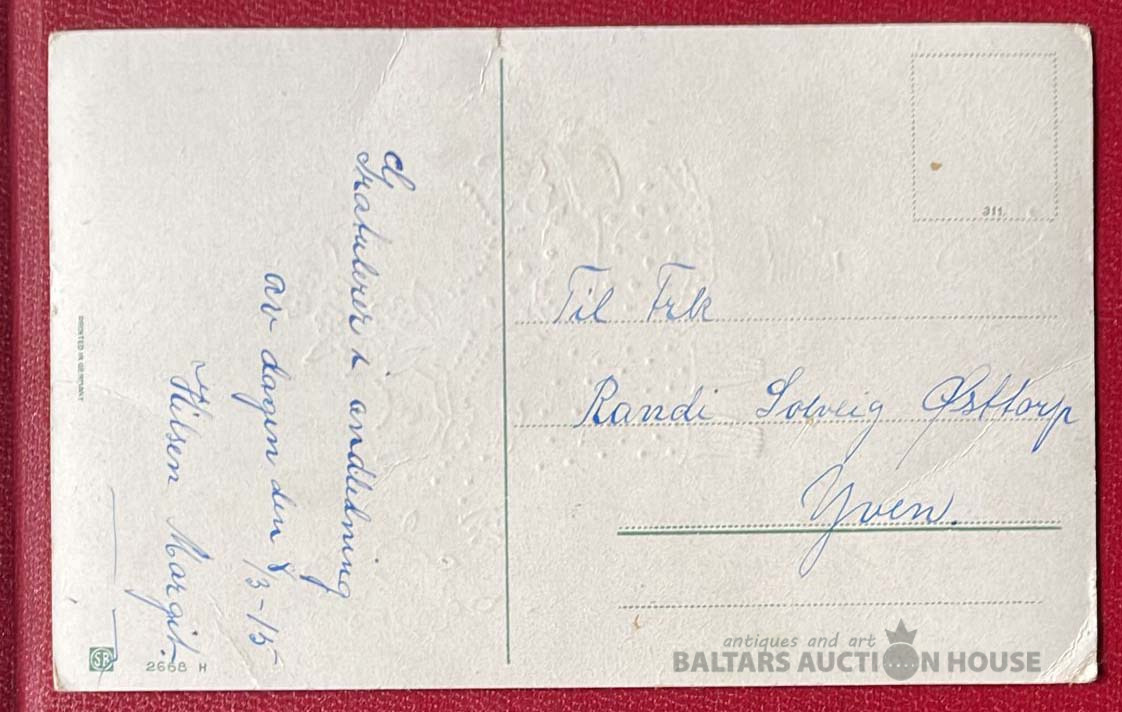 Gratulerer i andledning
av dagen den 8/3-15
Hilsen Margit.
PRINTED IN GERMANY
SB
2668 H
311.
Til Frk
Randi Solveig Østtorp
Yven.
antiques and art
BALTARS AUCTION HOUSE